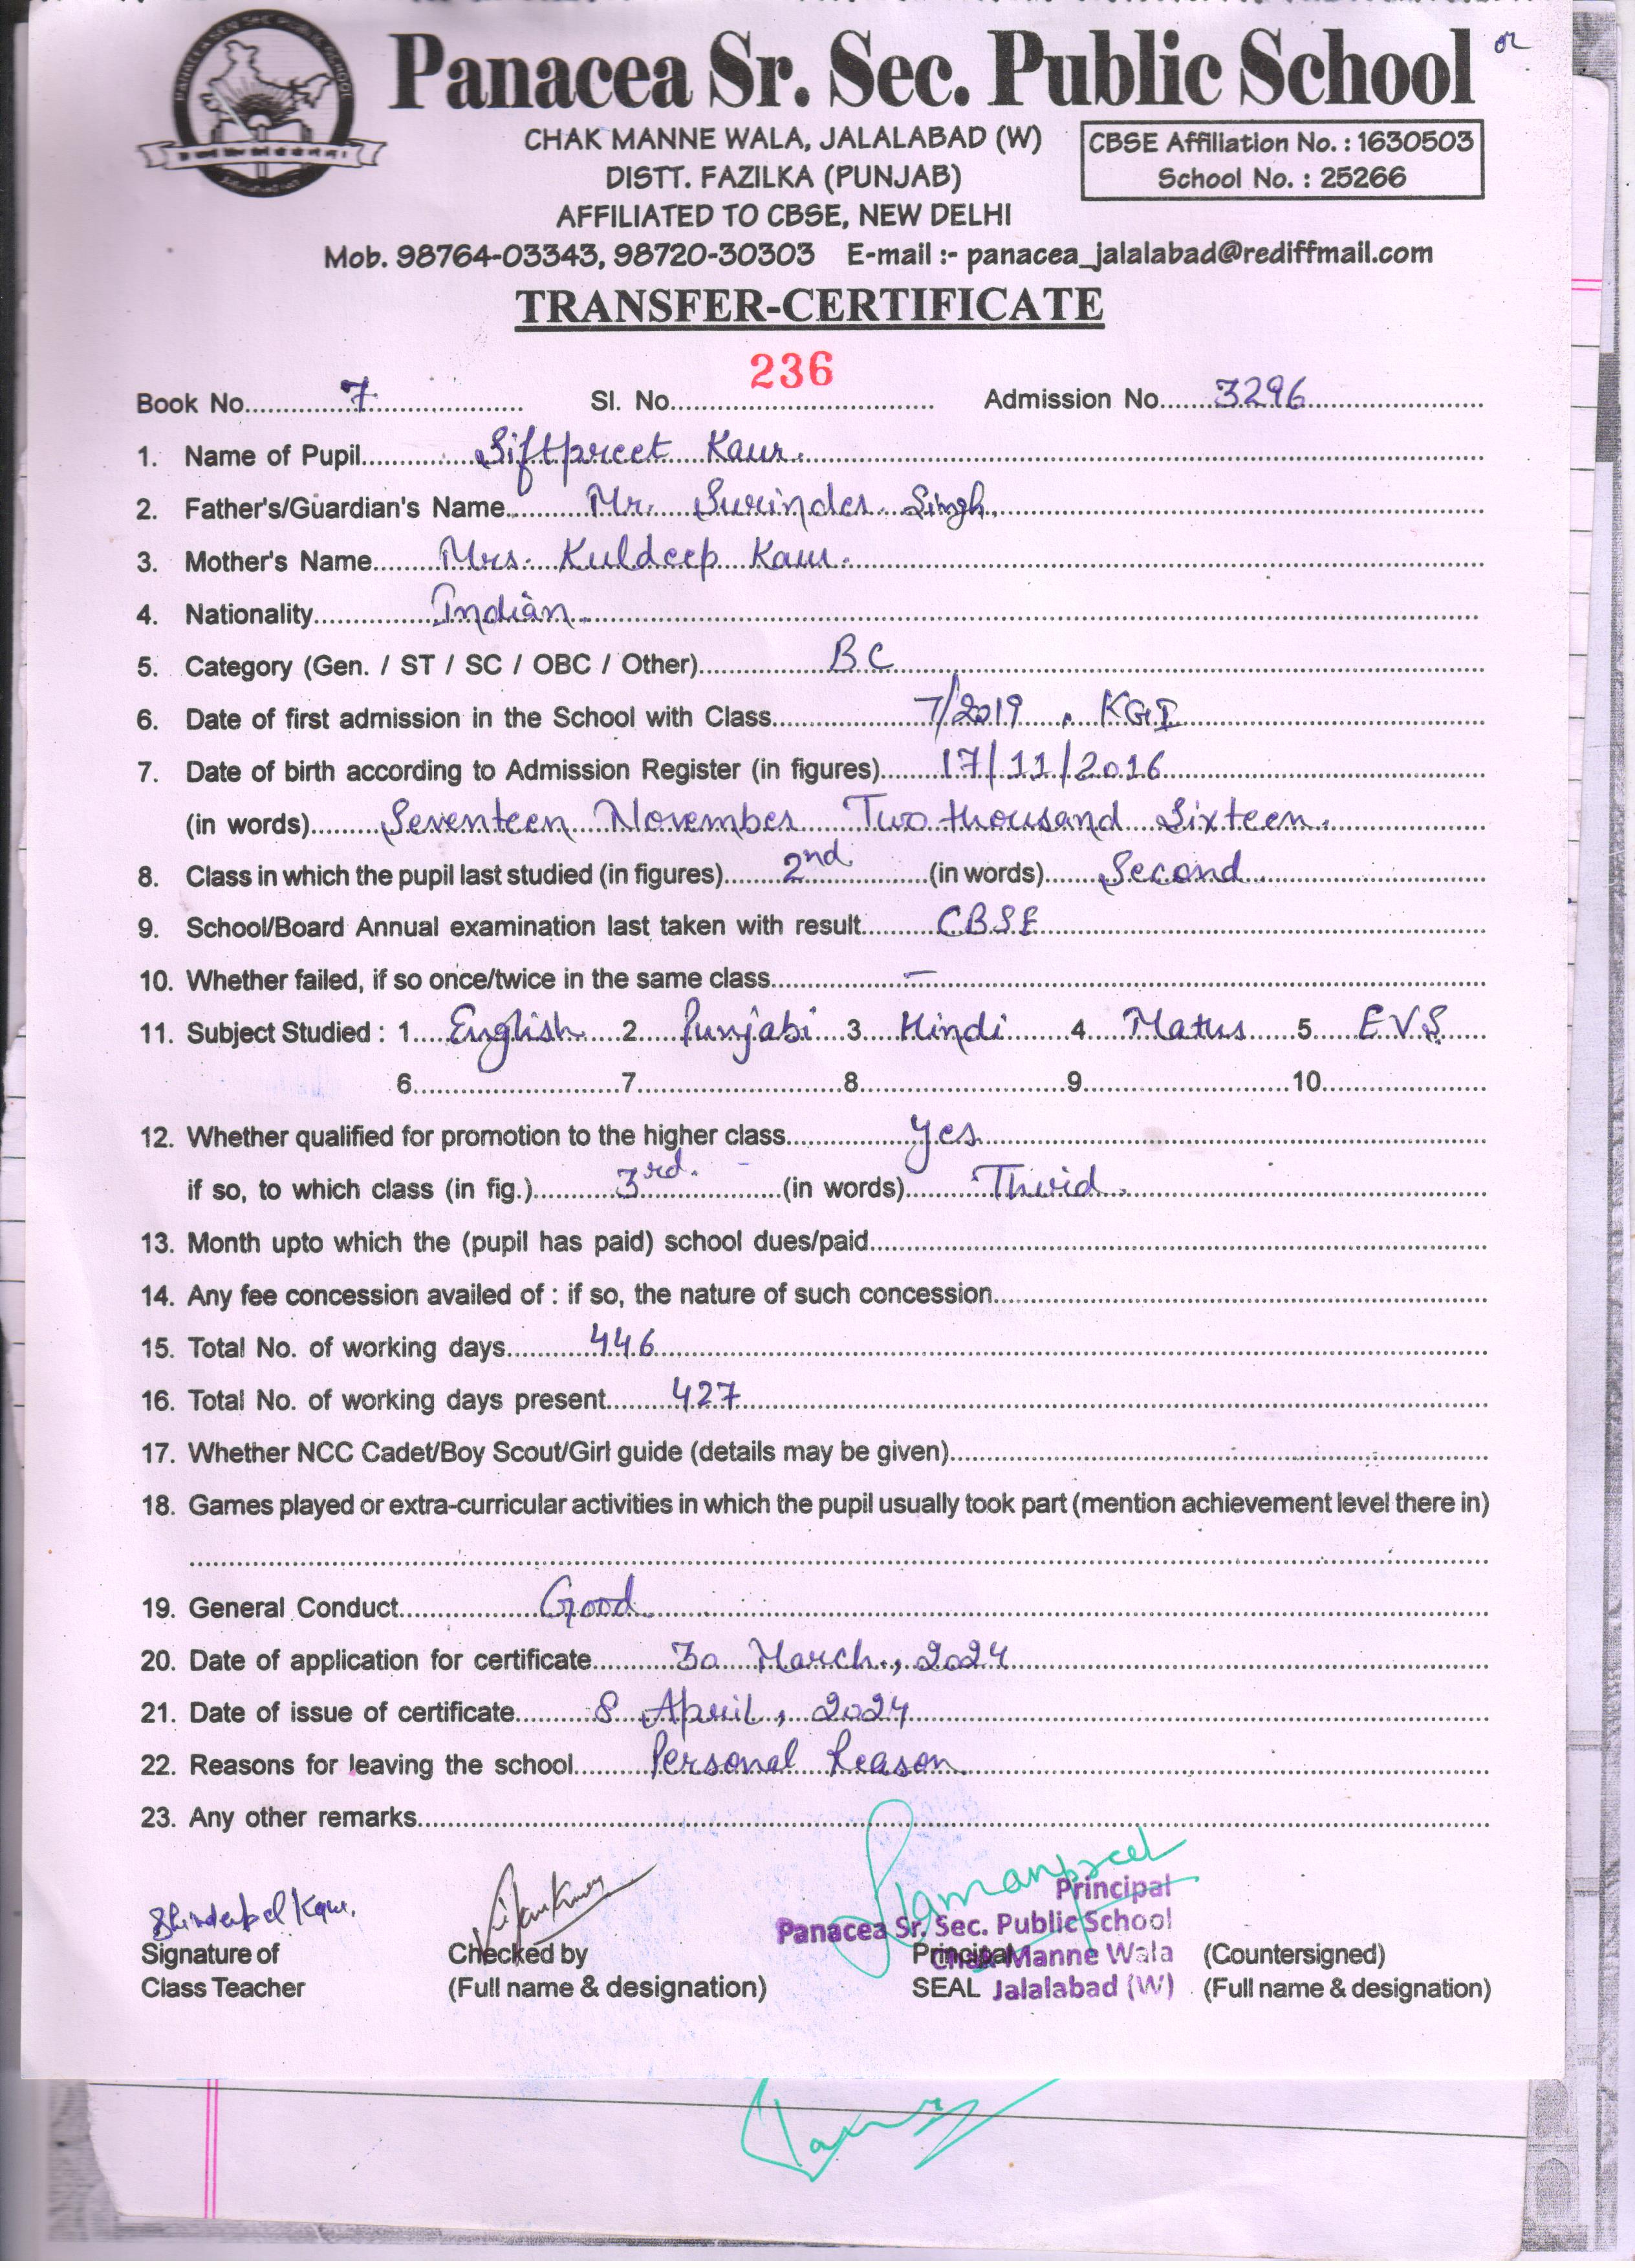 PANACEA SEN SEC PUBLIC SCHOOL
Panacea Sr. Sec. Public School
CHAK MANNE WALA, JALALABAD (W)
CBSE Affiliation No. : 1630503
DISTT. FAZILKA (PUNJAB)
School No. : 25266
AFFILIATED TO CBSE, NEW DELHI
Mob. 98764-03343, 98720-30303 E-mail :- panacea_jalalabad@rediffmail.com
TRANSFER-CERTIFICATE
Book No. 7 Sl. No. 236 Admission No. 3296
1. Name of Pupil Siftpreet Kaur.
2. Father's/Guardian's Name Mr. Surinder Singh
3. Mother's Name Mrs. Kuldeep Kaur.
4. Nationality Indian.
5. Category (Gen. / ST / SC / OBC / Other) BC
6. Date of first admission in the School with Class 7/2019, KG I
7. Date of birth according to Admission Register (in figures) 17/11/2016
(in words) Seventeen November Two thousand Sixteen.
8. Class in which the pupil last studied (in figures) 2nd (in words) Second
9. School/Board Annual examination last taken with result CBSE
10. Whether failed, if so once/twice in the same class —
11. Subject Studied : 1 English 2 Punjabi 3 Hindi 4 Maths 5 E.V.S
6 7 8 9 10
12. Whether qualified for promotion to the higher class yes
if so, to which class (in fig.) 3rd. (in words) Thrid.
13. Month upto which the (pupil has paid) school dues/paid
14. Any fee concession availed of : if so, the nature of such concession
15. Total No. of working days 446
16. Total No. of working days present 427
17. Whether NCC Cadet/Boy Scout/Girl guide (details may be given)
18. Games played or extra-curricular activities in which the pupil usually took part (mention achievement level there in)
19. General Conduct Good
20. Date of application for certificate 30 March, 2024
21. Date of issue of certificate 8 April, 2024
22. Reasons for leaving the school Personal Reason
23. Any other remarks
Principal
Panacea Sr. Sec. Public School
Chak Manne Wala
Jalalabad (W)
Signature of Checked by Principal (Countersigned)
Class Teacher (Full name & designation) SEAL (Full name & designation)